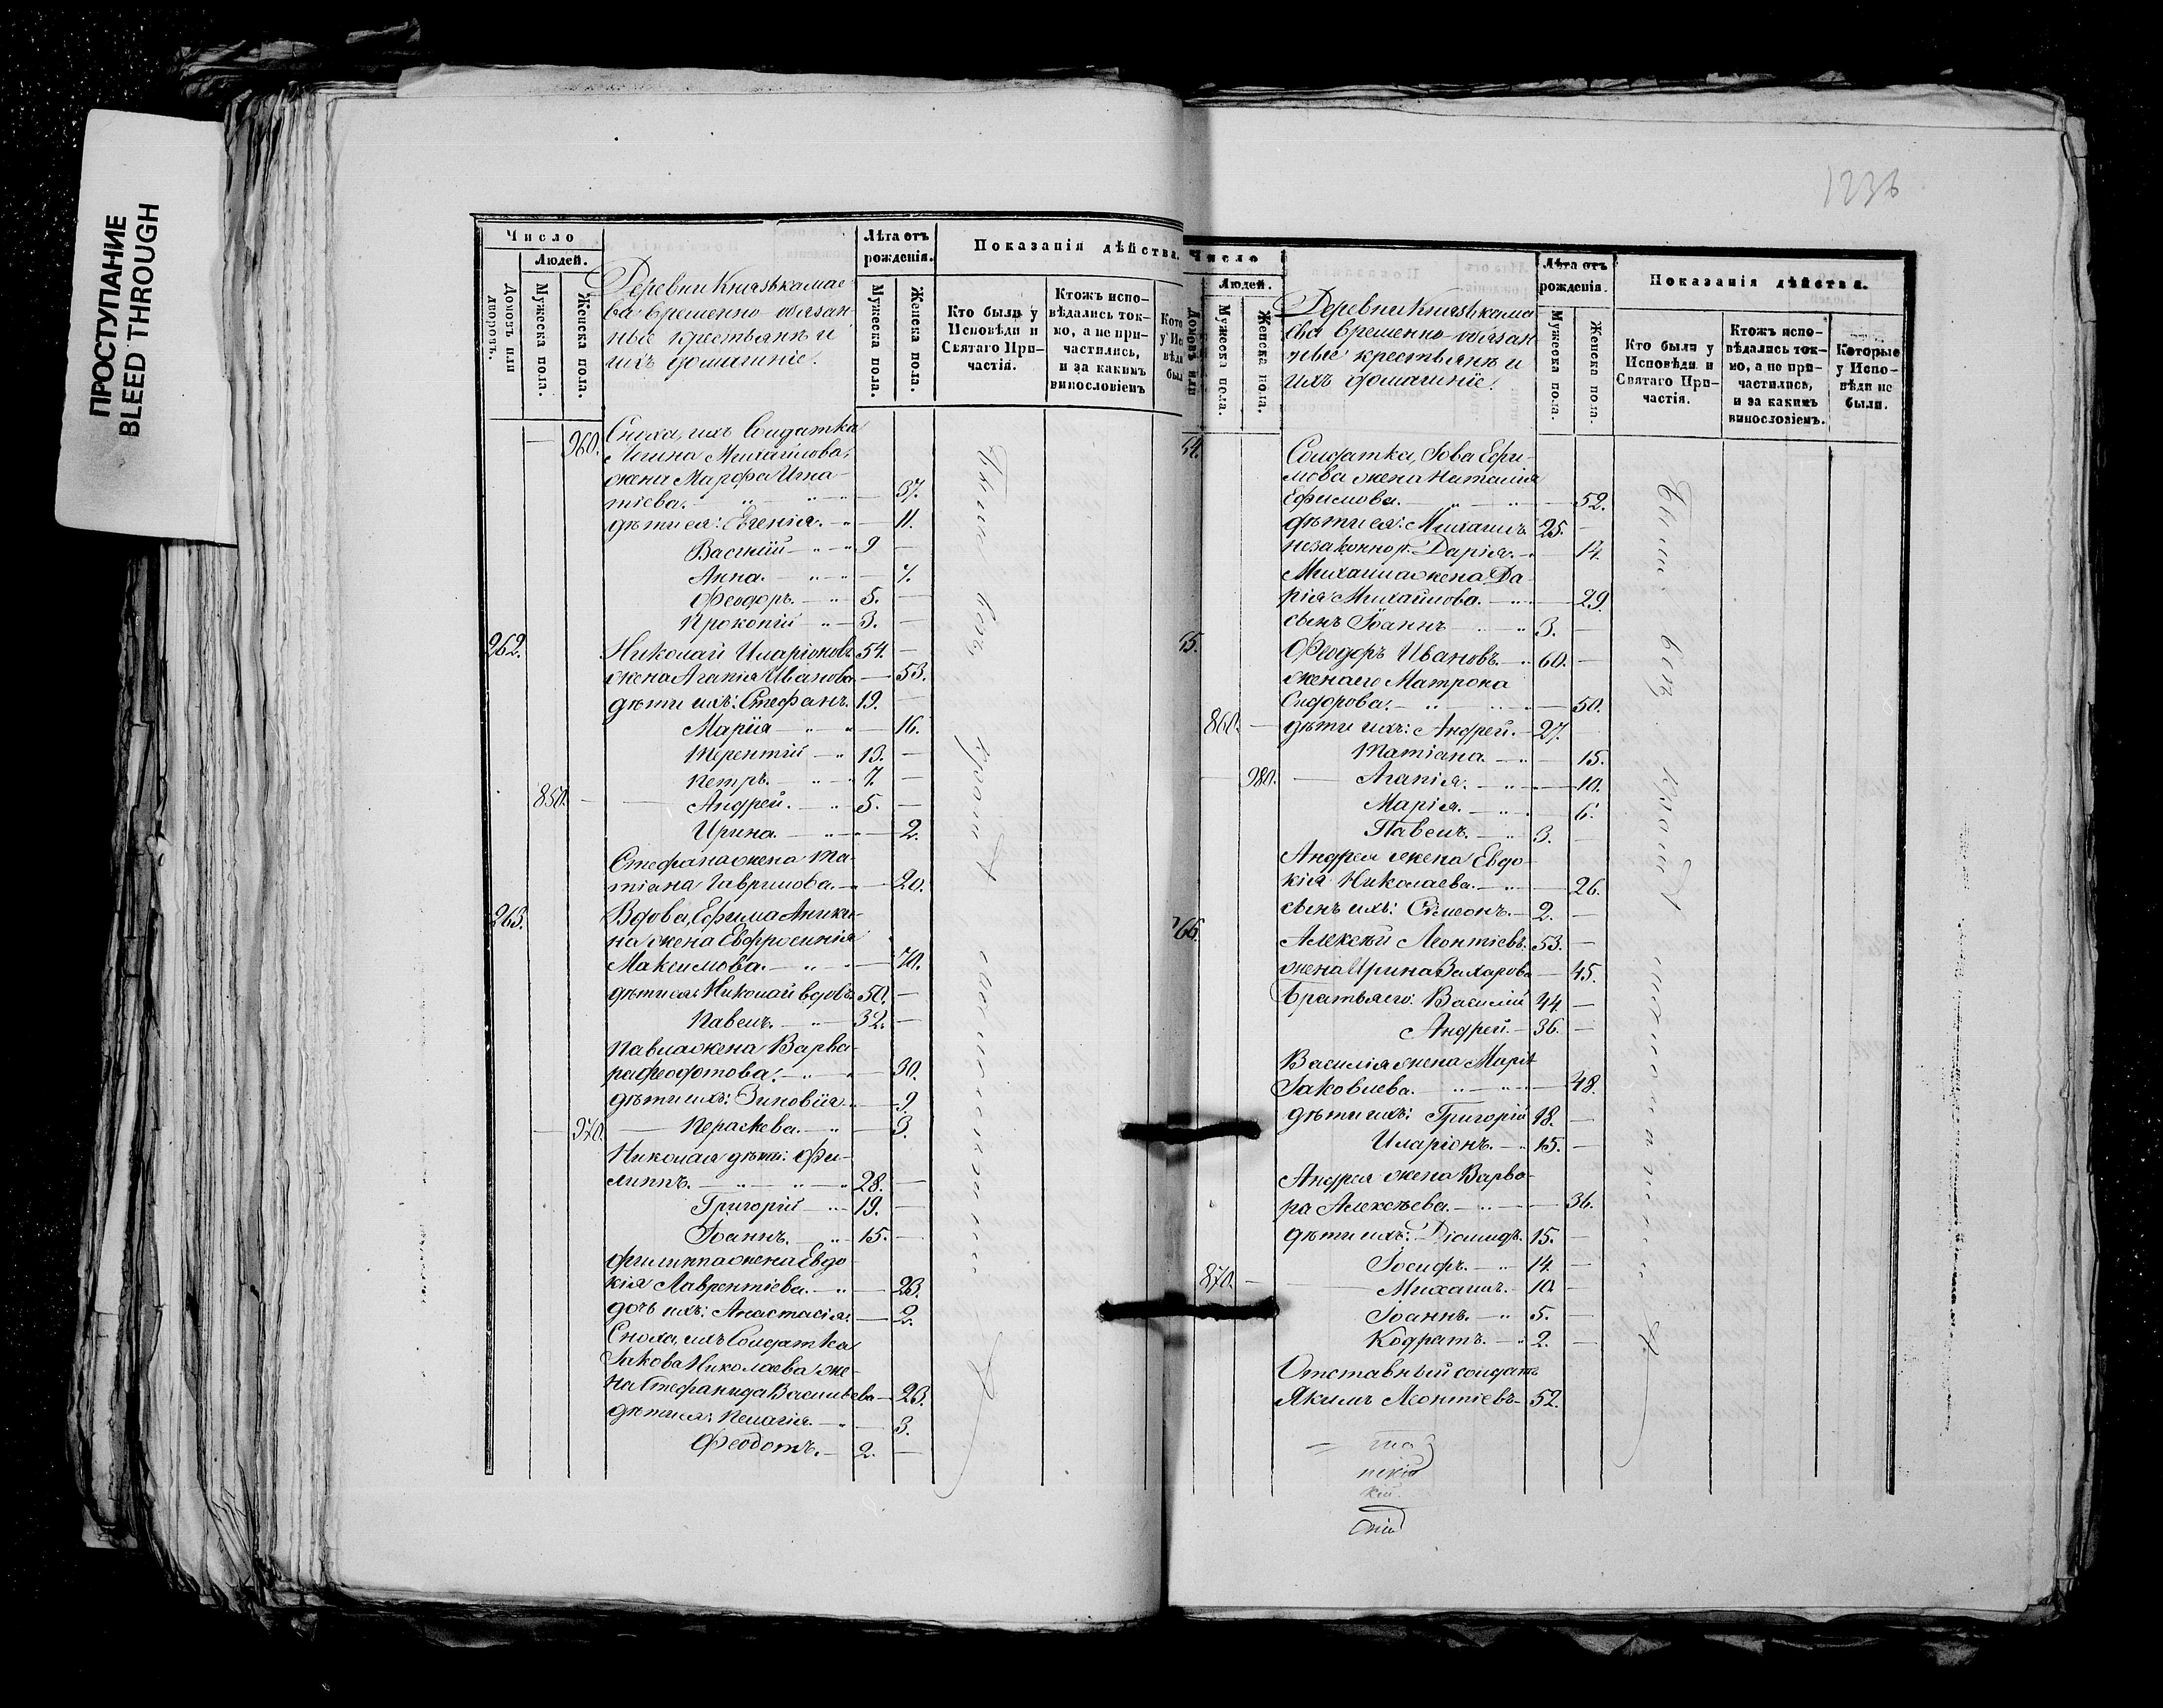 ПРОСТУПАНИЕ
BLEED THROUGH
Число
Домовъ или дворовъ.
Людей.
Мужеска пола.
Женска пола.
Деревни Князькамае-
ва временно-обязан-
ные крестьяне и
ихъ домашніе.
Лѣта отъ рожденія.
Мужеска пола.
Женска пола.
Показанія дѣйства.
Кто были у Исповѣди и Святаго Причастія.
Ктожъ исповѣдались токмо, а не причастились, и за какимъ винословіемъ
Сноха, ихъ Солдатка
Логина Михайлова,
жена Марфа Игна-
тіева. 37.
960.
дѣти ея: Евгенія. 11.
Василій 9
Анна. 7.
Феодоръ. 5.
Прокопій 3.
262. Николай Иларіоновъ 54.
жена Агапія Иванова 53.
дѣти ихъ: Стефанъ. 19.
Марія 16.
Терентій 13.
Петръ. 7.
850. Андрей. 5.
Ирина. 2.
Стефана жена Та-
тіана Гаврилова. 20.
263. Вдова, Ефима Аники-
на жена Евфросинія
Максимова. 70.
дѣти ея: Николай вдовъ 50.
Павелъ. 32.
Павла жена Варва-
ра Феодотова. 30.
дѣти ихъ: Зиновія 9.
970. Параскева. 3.
Николая дѣти: Фи-
липпъ. 28.
Григорій 19.
Іоаннъ. 15.
Филиппа жена Евдо-
кія Лаврентіева. 23.
дочь ихъ: Анастасія. 2.
Сноха, ихъ Солдатка
Іакова Николаева же-
на Стефанида Васильева 23.
дѣти ея: Пелагія. 3.
Феодотъ. 2.
Были въ
исповѣди
1236
Число
Домовъ или
Людей.
Мужеска пола.
Женска пола.
Деревни Князькамае
ва временно-обязан
ные крестьяне и
ихъ домашніе.
Лѣта отъ рожденія.
Мужеска пола.
Женска пола.
Показанія дѣйства.
Кто были у Исповѣди и Святаго Причастія.
Ктожъ исповѣдались токмо, а не причастились, и за какимъ винословіемъ.
Которые у Исповѣди не были.
64. Солдатка, Іова Ефи-
мова жена Наталія
Ефимова. 52.
дѣти ея: Михаилъ 25.
незаконнор. Дарія. 14.
Михаила жена Да-
рія Михайлова. 29.
сынъ Іоаннъ 3.
65. Феодоръ Ивановъ. 60.
жена его Матрона
Сидорова. 50.
860. дѣти ихъ: Андрей. 27.
Татіана. 15.
980. Агапія. 10.
Марія. 6.
Павелъ. 3.
Андрея жена Евдо
кія Николаева. 26.
сынъ ихъ: Симеонъ. 2.
266. Алексѣй Леонтіевъ. 53.
жена Ирина Захарова 45.
Братья его: Василій 44.
Андрей. 36.
Василія жена Марія
Іаковлева. 48.
дѣти ихъ: Григорій 18.
Иларіонъ. 15.
Андрея жена Варва-
ра Алексѣева. 36.
дѣти ихъ: Діомидъ. 15.
Іосифъ. 14.
870. Михаилъ. 10.
Іоаннъ. 5.
Кодратъ. 2.
Отставный солдатъ
Якимъ Леонтіевъ 52.